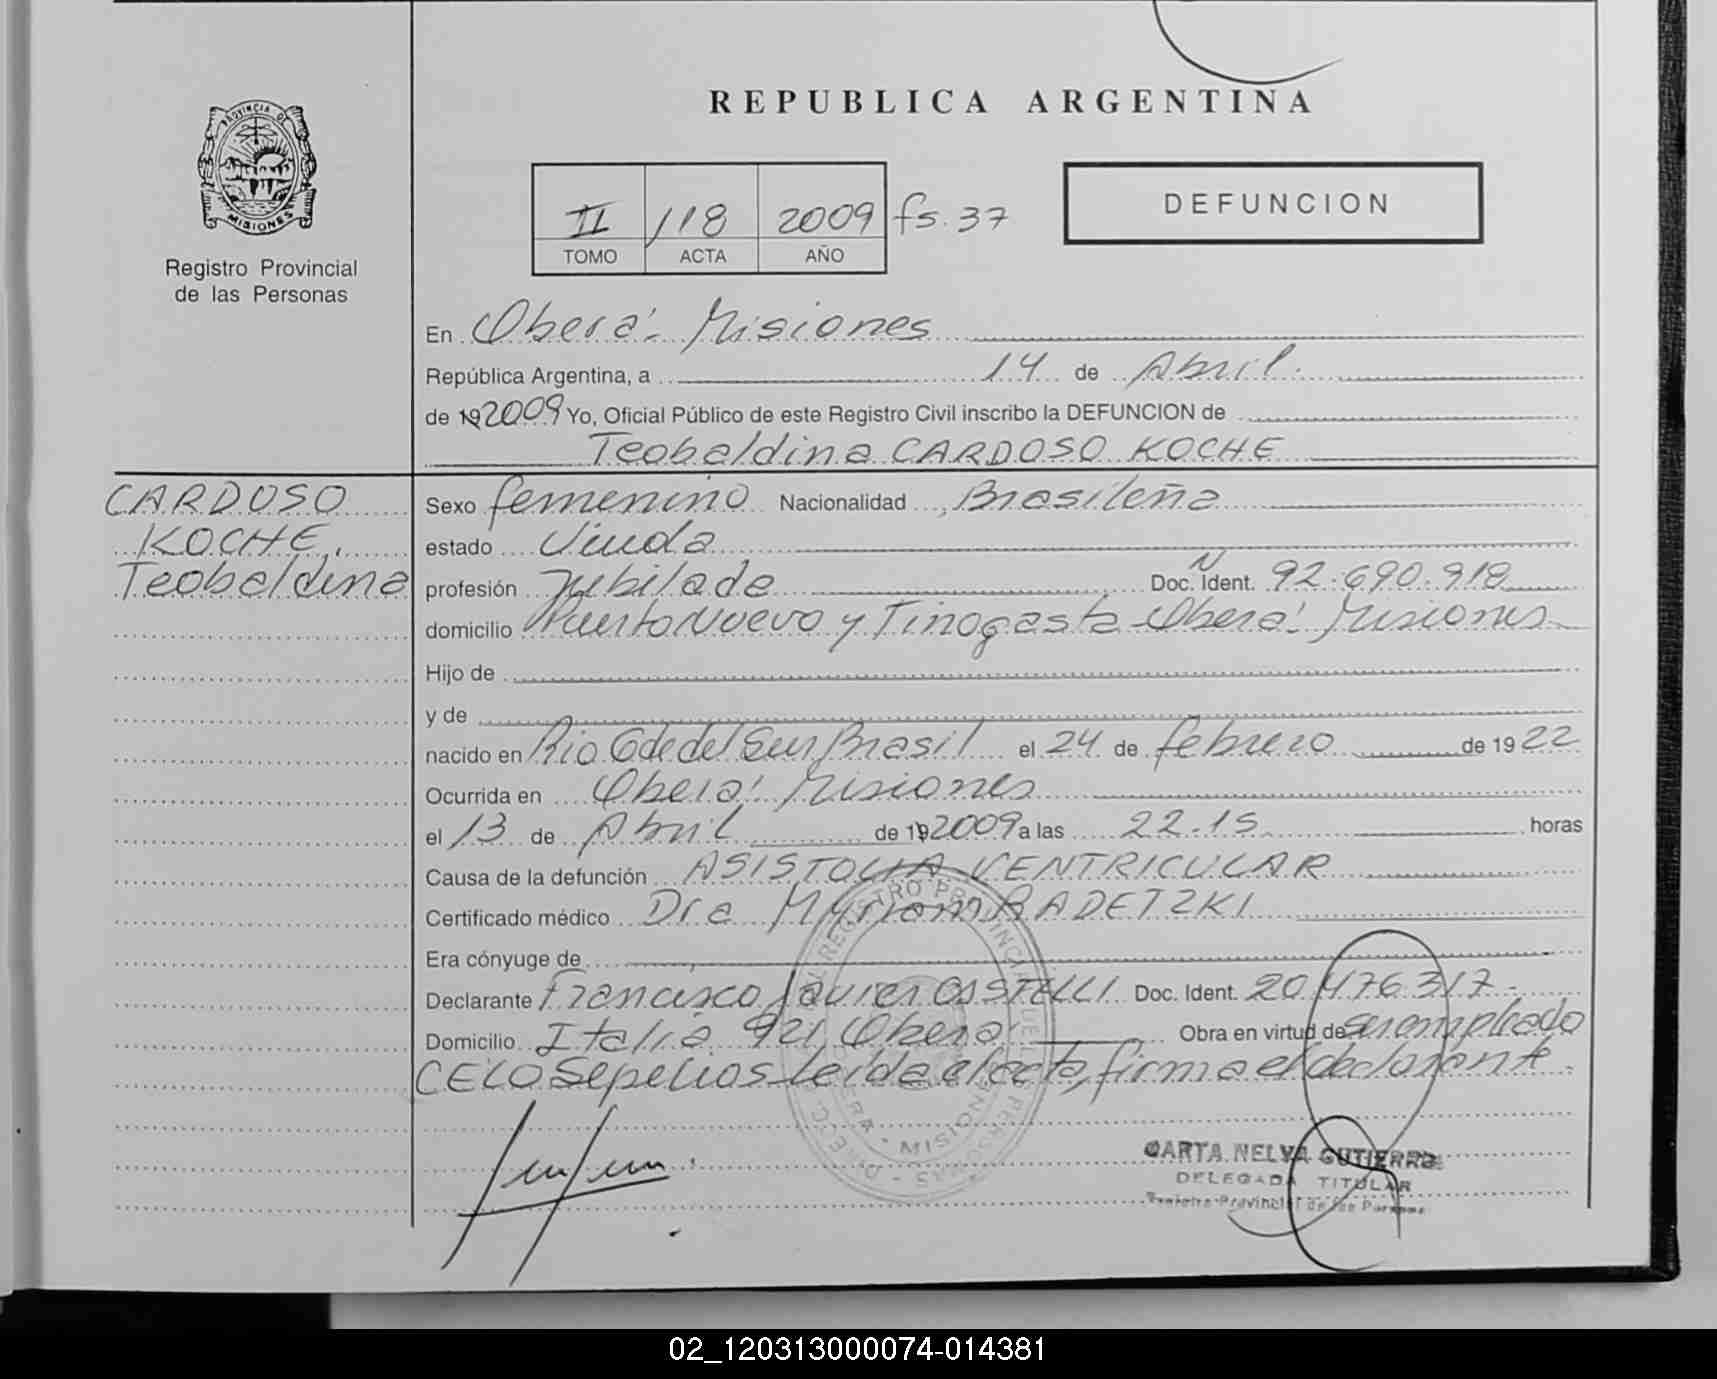 REPUBLICA ARGENTINA
PROVINCIA DE
MISIONES
Registro Provincial
de las Personas
II 118 2009 fs. 37
TOMO ACTA AÑO
DEFUNCION
En Oberá - Misiones
República Argentina, a 14 de Abril.
de 19 2009 Yo, Oficial Público de este Registro Civil inscribo la DEFUNCION de
Teobaldina CARDOSO KOCHE
CARDOSO
KOCHE,
Teobaldina
Sexo femenino Nacionalidad Brasileña
estado Viuda
profesión Jubilada Doc. Ident. Nº 92.690.918
domicilio Puerto Nuevo y Tinogasta Oberá Misiones
Hijo de
y de
nacido en Rio Gde del Sur Brasil el 24 de febrero de 1922
Ocurrida en Oberá Misiones
el 13 de Abril de 19 2009 a las 22.15 horas
Causa de la defunción ASISTOLIA VENTRICULAR
Certificado médico Dra Myriam RADETZKI
Era cónyuge de
Declarante Francisco Javier CASTELLI Doc. Ident. 20.476.317
Domicilio Italia 921 Oberá Obra en virtud de ser empleado
CELO Sepelios Leida el acta, firma el declarante
MISIONES
CARTA NELVA GUTIERREZ
DELEGADA TITULAR
Registro Provincial de las Personas
02_120313000074-014381